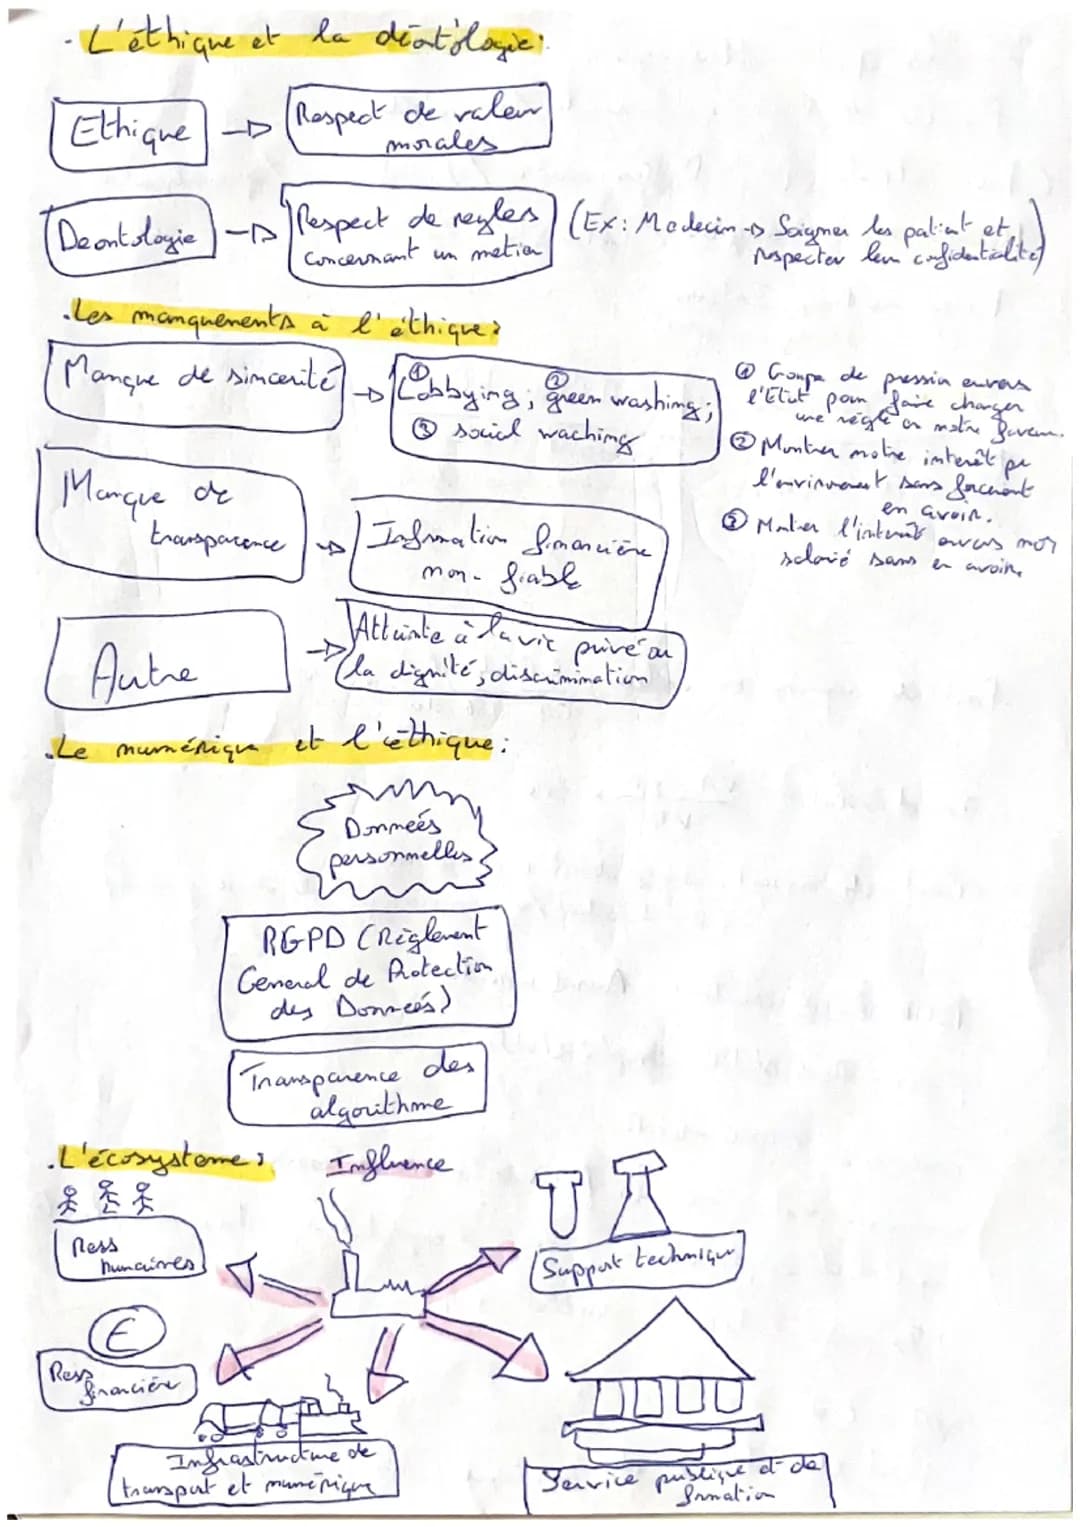 - L'éthique et la déontologie:
Ethique
Respect de valeur
morales
Deontologie
Respect de regles
concernant un metier
(Ex: Medecin → Soigner les patient et
respecter leur confidentialité)
.Les manquements à l'éthique:
Manque de sincerité
① Lobbying; ② green washing;
③ social waching
① Groupe de pression envers
l'Etat pour faire changer
une règle en notre faveur.
② Montrer notre interêt pr
l'environnement sans forcément
en avoir.
③ Montrer l'interêt envers nos
salarié sans en avoir.
Manque de
transparence
Information financière
non-fiable
Autre
Atteinte à la vie privé ou
la dignité, discrimination
.Le numérique et l'éthique:
Données
personnelles
RGPD (Règlement
General de Protection
des Données)
Transparence des
algorithme
.L'écosysteme:
Influence
Ress
humaines
Support technique
E
Ress
financière
Infrastructure de
transport et numérique
Service publique et de
formation